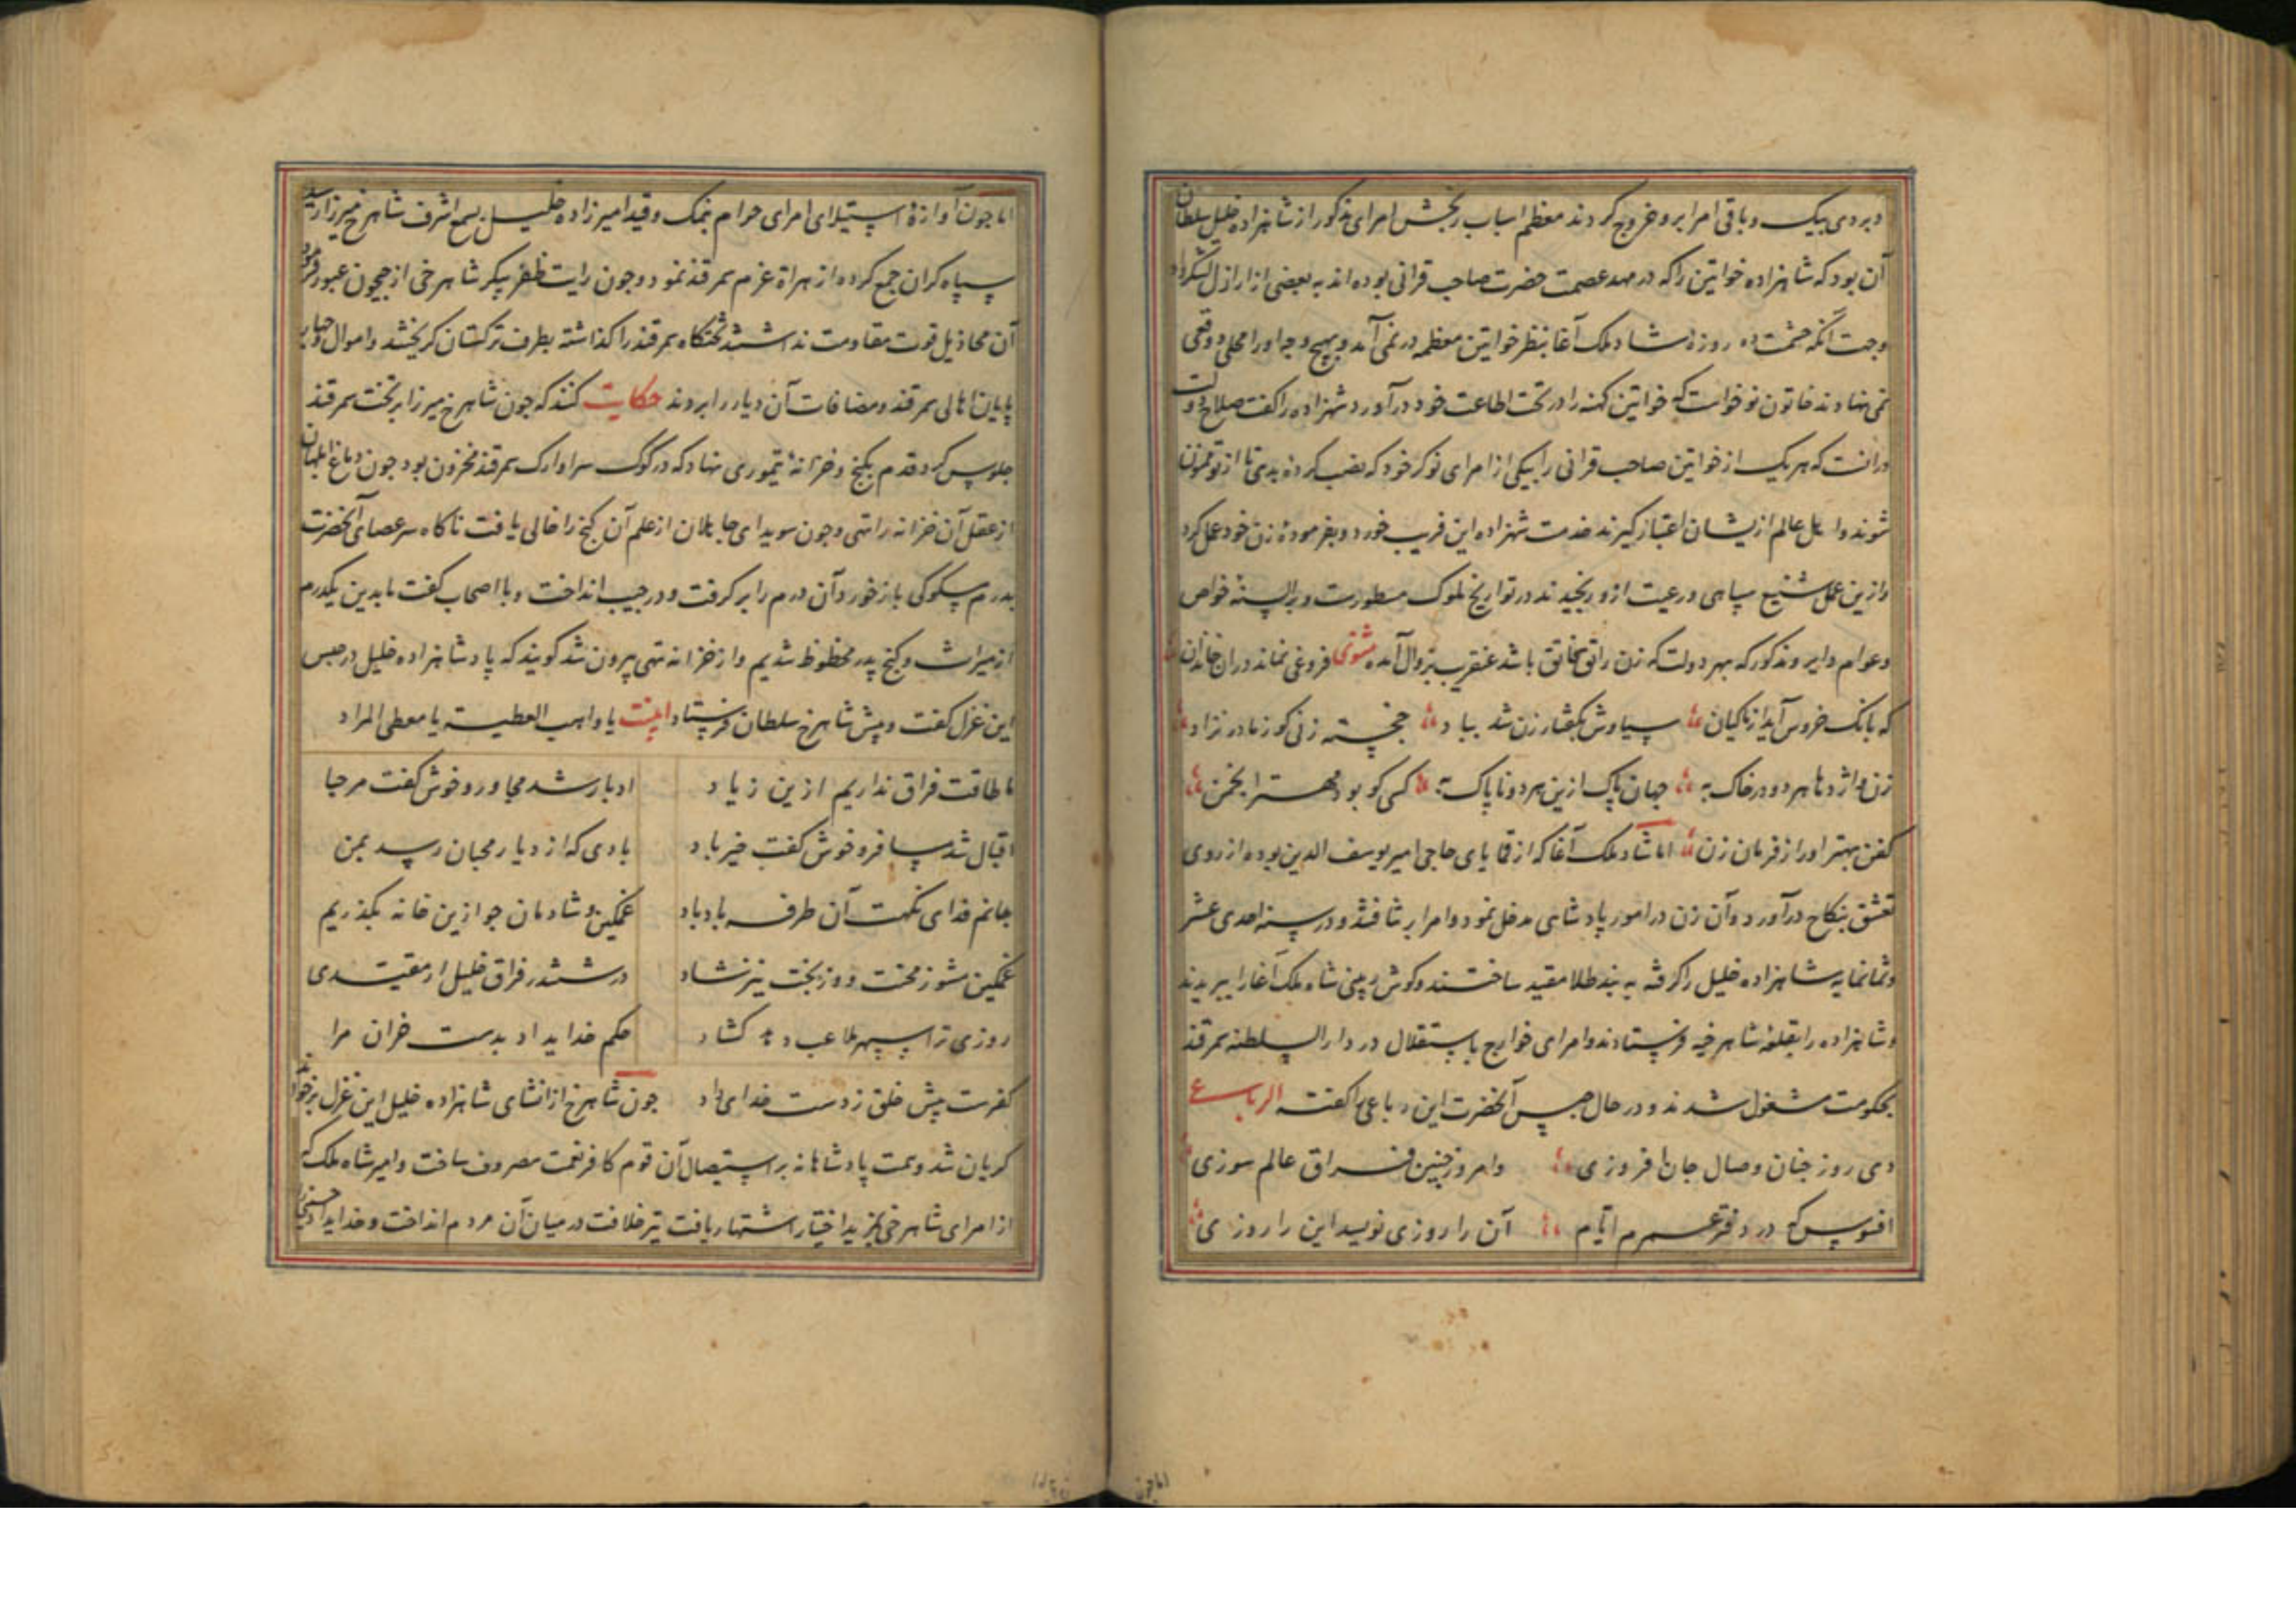 دیردی بیک و باقی امرا برو خروج کردند معظم اسباب رنجش امرای مذکور از شاهزاده خلیل سلطان
آن بود که شاهزاده خواتین را که در مهد عصمت حضرت صاحب قرانی بوده‌اند به بعضی از ارازل لشکر داد
وجهت آنکه حشمت ده روزهٔ شاد ملک آغا بنظر خواتین معظمه در نمی آمد و بهیچ وجه او را محلی و وقعی
نمی نهادند خاتون نو خواست که خواتین کهنه را در تحت اطاعت خود در آورد شهزاده را کفت صلاح دولت
درانست که هر یک از خواتین صاحب قرانی را بیکی از امرای نوکر خود که نصب کرده بدی تا از تو ممنون
شوند و اهل عالم ازیشان اعتبار کیرند خدمت شهزاده این فریب خورد و بفرمودهٔ زن خود عمل کرد
و ازین عمل شنیع سپاهی و رعیت ازو رنجیدند در تواریخ ملوک مسطورست و بر السنهٔ خواص
و عوام دایر و مذکور که بهر دولت که زن راتق و فاتق باشد عنقریب بزوال آمده مثنوی فروغی نماند دران خاندان
که بانک خروس آید از ماکیان سیاوش بکفتار زن شد بباد خجسته زنی کو ز مادر نزاد
زن و اژدها هر دو در خاک به جهان پاک ازین هر دو ناپاک به کسی کو بود مهتر انجمن
کفن بهتر او را ز فرمان زن اما شاد ملک آغا که از قمایای حاجی امیر یوسف الدین بوده از روی
تعشق بنکاح در آورد و آن زن در امور پادشاهی مدخل نمود و امرا بر شافتند و در سنه احدی عشر
و ثمانمایه شاهزاده خلیل را کرفته به بند طلا مقید ساختند و کوش و بینی شاد ملک آغا را ببریدند
و شاهزاده را بقلعهٔ شاهرخیه فرستادند و امرای خوارج باستقلال در دار السلطنه سمرقند
بحکومت مشغول شدند و در حال حبس آنحضرت این رباعی را کفت الرباعی
دی روز چنان وصال جان افروزی وامروز چنین فراق عالم سوزی
افسوس که در دفتر عمرم ایام آن را روزی نویسد این را روزی
اما چون آوازهٔ استیلای امرای حرام نمک و قید امیرزاده خلیل بسمع اشرف شاهرخ میرزا رسید
سپاه کران جمع کرده از هراة عزم سمرقند نمود و چون رایت ظفر پیکر شاهرخی از جیحون عبور فرمود
آن مخاذیل قوت مقاومت نداشتند تختکاه سمرقند را کذاشته بطرف ترکستان کریختند و اموال و جهات
پایان اهالی سمرقند و مضافات آن دیار را بردند حکایت کنند که چون شاهرخ میرزا بر تخت سمرقند
جلوس کرد قدم بکنج و خزانهٔ تیموری نهاد که در کوک سرا و ارک سمرقند مخزون بود چون دماغ ابلهان
از عقل آن خزانه را تهی و چون سویدای جاهلان از علم آن کنج را خالی یافت ناکاه سر عصای آنحضرت
بدرم سکوکی باز خورد و آن درم را بر کرفت و در جیب انداخت و با اصحاب کفت ما بدین یکدرم
از میراث و کنج پدر محظوظ شدیم و از خزانه تهی بیرون شد کویند که پادشاهزاده خلیل در حبس
این غزل کفت و پیش شاهرخ سلطان فرستاد اینست یا واهب العطیة یا معطی المراد
ما طاقت فراق نداریم ازین زیاد ادبار شد مجاور و خوش کفت مرحبا
اقبال شد مسافر و خوش کفت خیر باد بادی که از دیار محبان رسد بمن
جانم فدای نکهت آن طرفه باد باد غمکین و شادمان چو ازین خانه بکذریم
غمکین مشو ز محنت و وز بخت نیز شاد در ششدر فراق خلیل ار مقیدی
روزی ترا سپهر ملاعب دهد کشاد حکم خدای داد بدست خران مرا
کفرست پیش خلق ز دست خدای داد چون شاهرخ از انشای شاهزاده خلیل این غزل برخواند
کریان شد و همت پادشاهانه بر استیصال آن قوم کافر نعمت مصروف ساخت و امیر شاه ملک که
از امرای شاهرخی بمزید اختیار اشتهار یافت تیر خلافت در میان آن مردم انداخت و خدایداد
اما چون